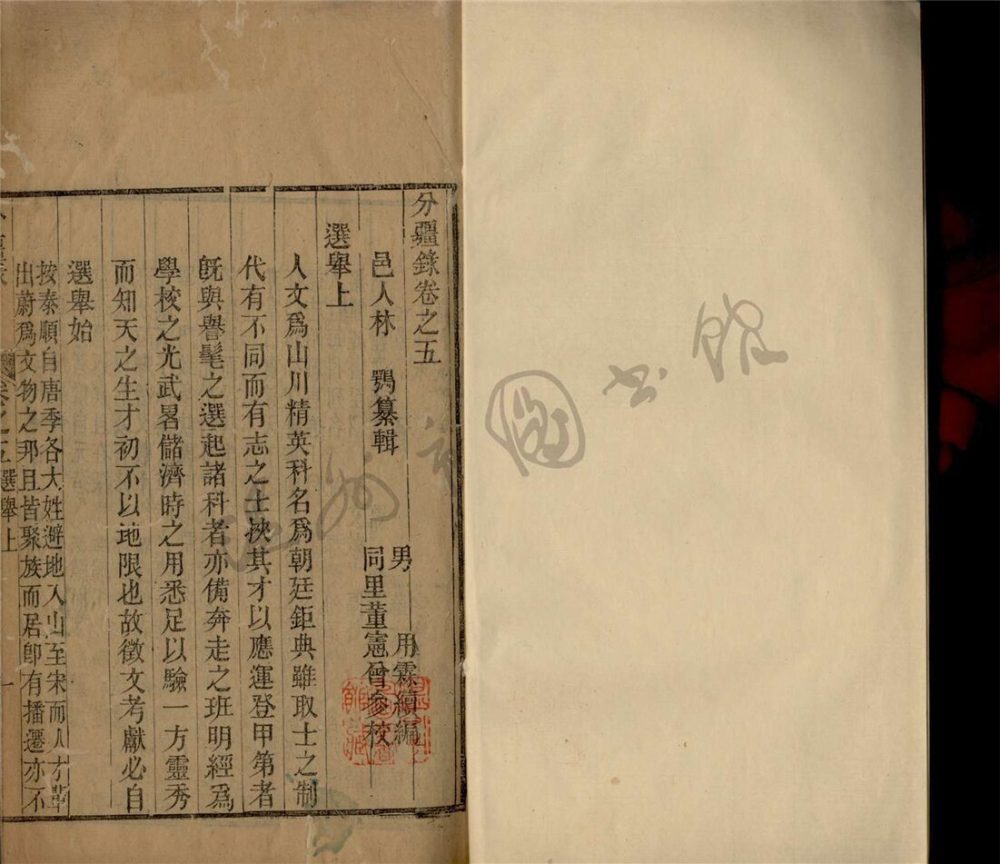 分疆錄卷之五
邑人林　鶚纂輯　男　用霖續編
同里董憲曾參校
選舉上
人文爲山川精英科名爲朝廷鉅典雖取士之制
代有不同而有志之士挾其才以應運登甲第者
旣與譽髦之選起諸科者亦備奔走之班明經爲
學校之光武畧儲濟時之用悉足以驗一方靈秀
而知天之生才初不以地限也故徵文考獻必自
選舉始
按泰順自唐季各大姓避地入山至宋而人才輩
出蔚爲文物之邦且皆聚族而居卽有播遷亦不
卷之五選舉上　一
圖書館